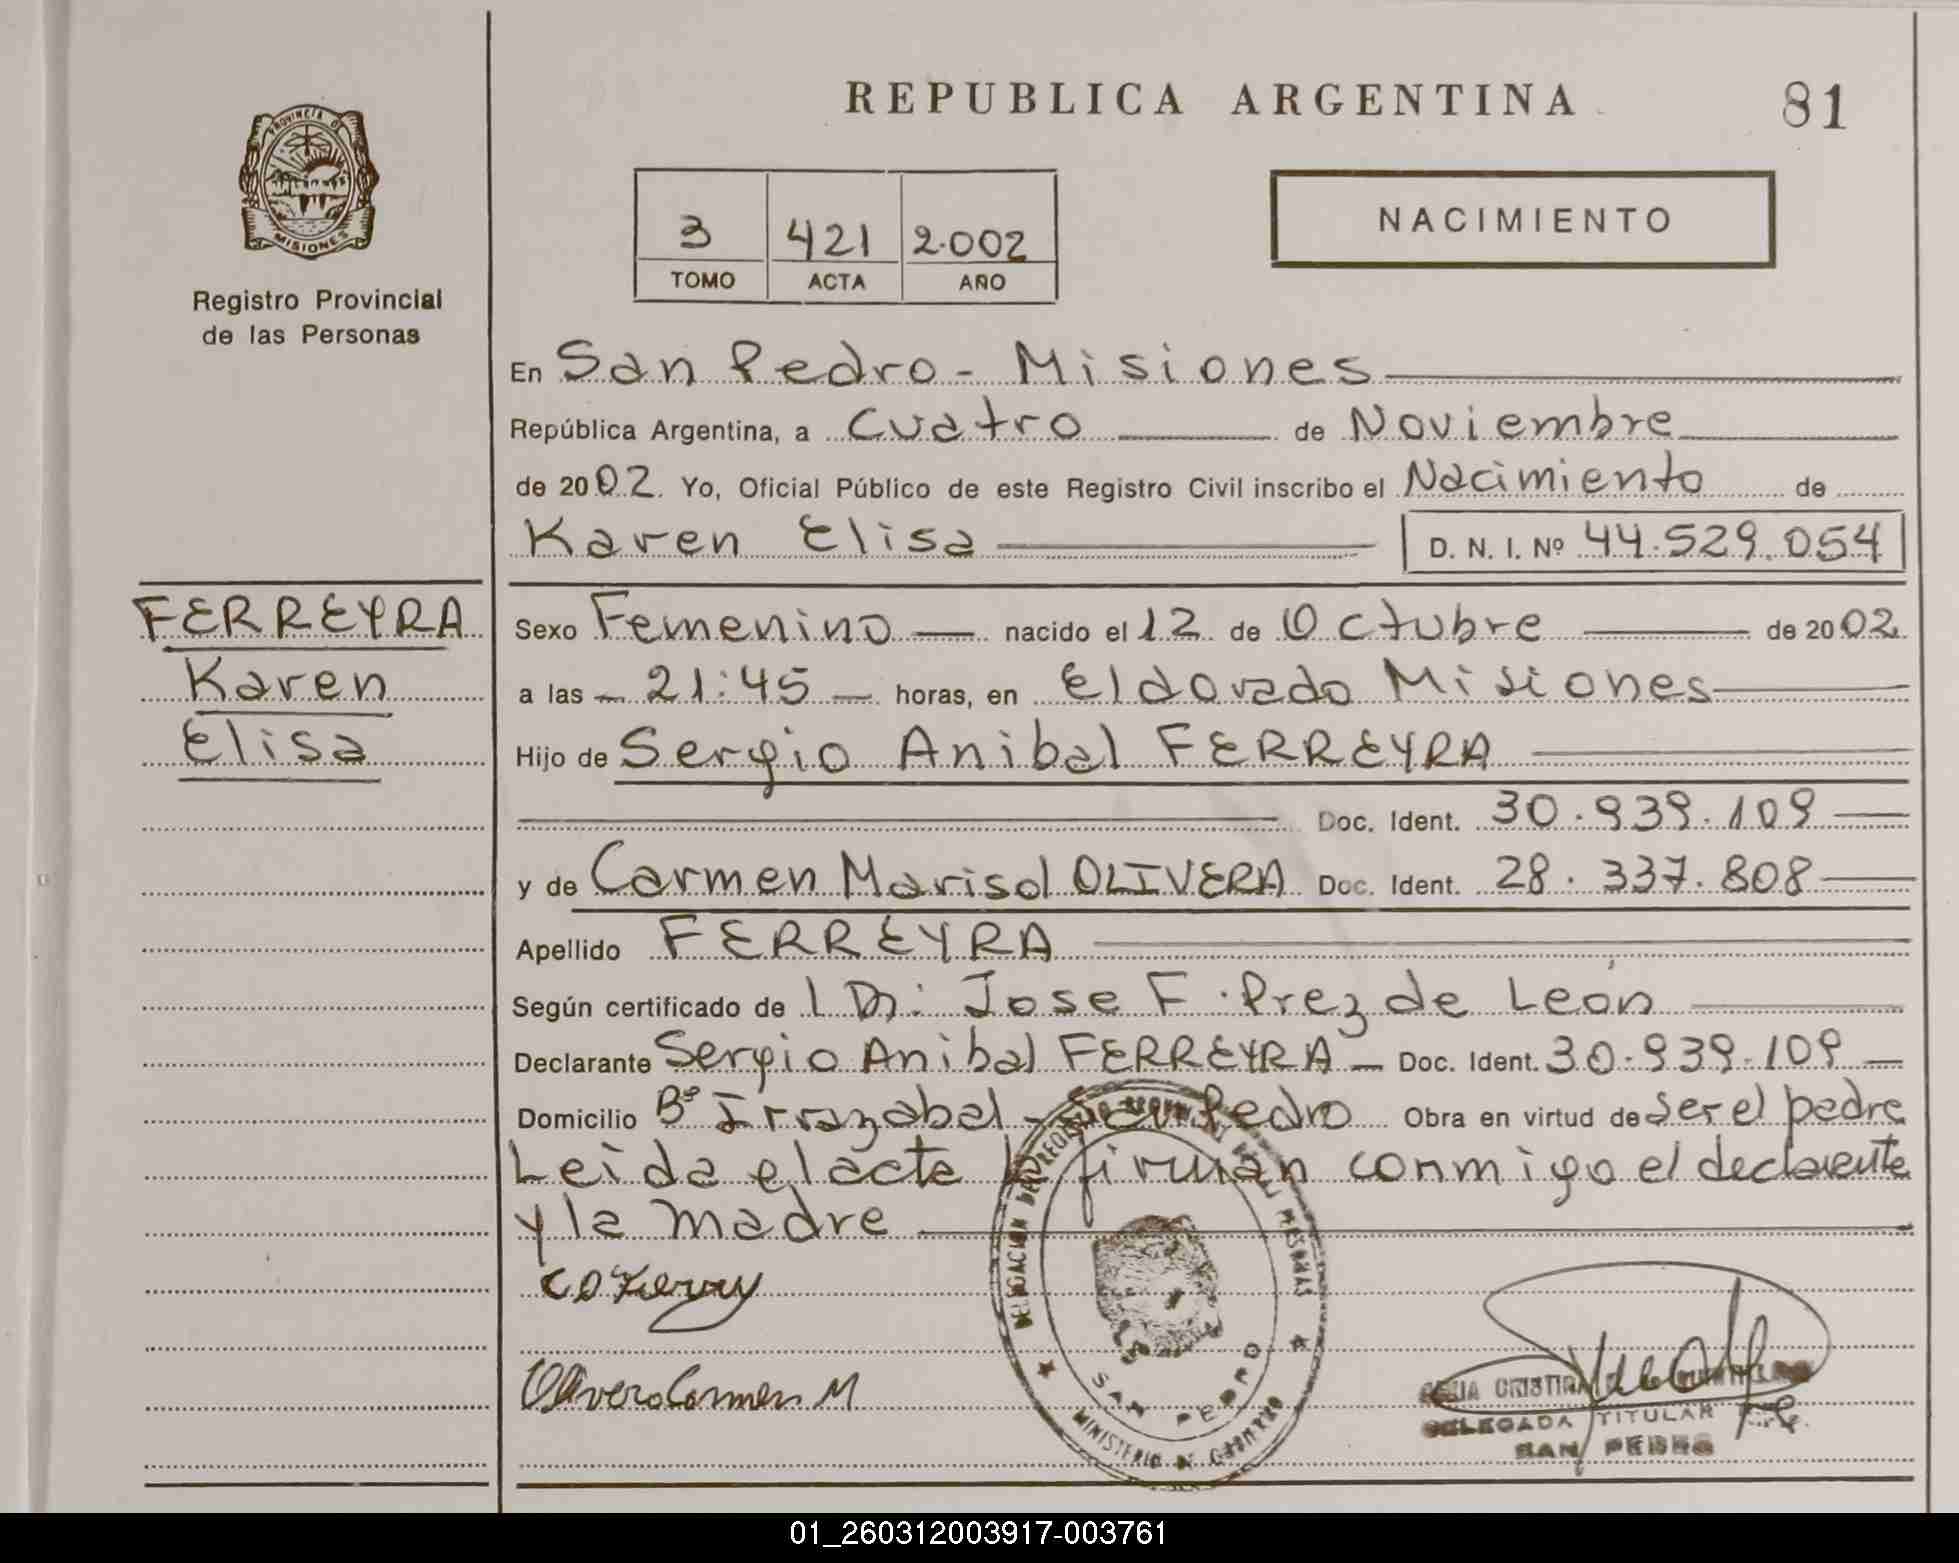 REPUBLICA ARGENTINA
81
PROVINCIA DE MISIONES
Registro Provincial
de las Personas
3 421 2.002
TOMO ACTA AÑO
NACIMIENTO
En San Pedro - Misiones
República Argentina, a Cuatro de Noviembre
de 2002. Yo, Oficial Público de este Registro Civil inscribo el Nacimiento de
Karen Elisa D. N. I. Nº 44.529.054
FERREYRA
Karen
Elisa
Sexo Femenino nacido el 12 de Octubre de 2002
a las - 21:45 - horas, en Eldorado Misiones
Hijo de Sergio Anibal FERREYRA
Doc. Ident. 30.939.109
y de Carmen Marisol OLIVERA Doc. Ident. 28.337.808
Apellido FERREYRA
Según certificado de Jose F. Prez de León
Declarante Sergio Anibal FERREYRA - Doc. Ident. 30.939.109
Domicilio Bº Irrazabal - San Pedro Obra en virtud de ser el padre
Leida el acta firman conmigo el declarante
y la madre
Olivera Carmen M
SAN PEDRO
MINISTERIO DE GOBIERNO
CRISTINA
DELEGADA TITULAR
SAN PEDRO
01_260312003917-003761